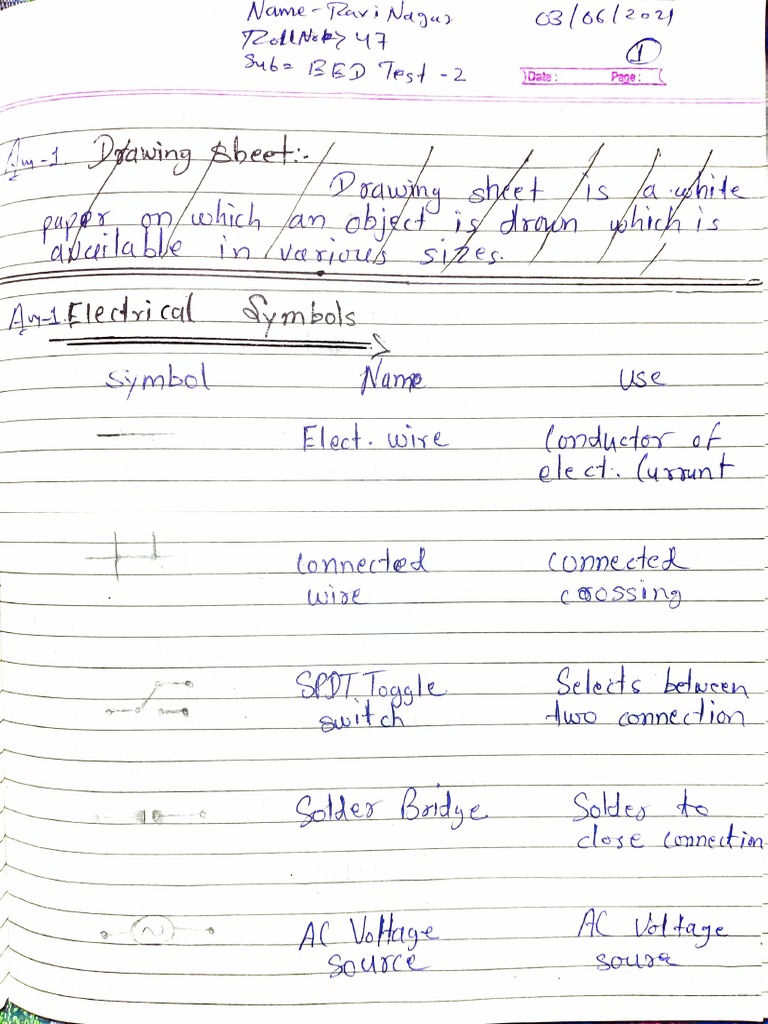 Name - Ravi Nagar 03/06/2021
Roll No 47
Sub = BED Test - 2 1
Date: Page:
Ans-1. Drawing sheet:-
Drawing sheet is a white
paper on which an object is drown which is
available in various sizes.
Ans-1. Electrical Symbols
Symbol Name Use
Elect. wire Conductor of
elect. Current
Connected connected
wire crossing
SPDT Toggle Selects between
switch two connection
Solder Bridge Solder to
close connection
AC Voltage AC Voltage
source